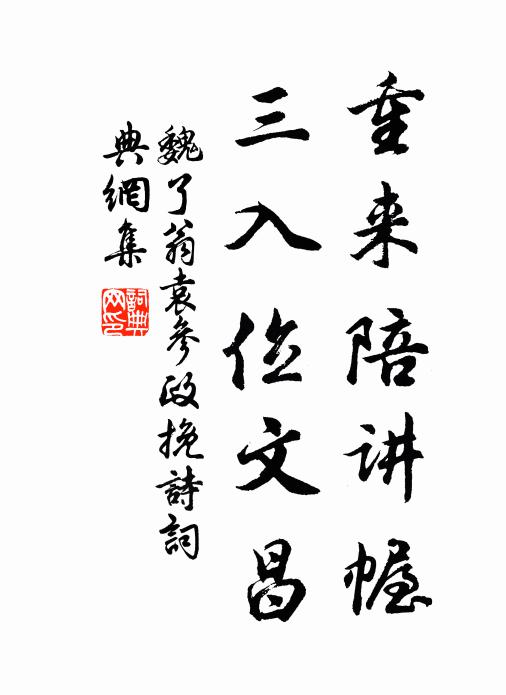 重来陪讲幄
三入俭文昌
魏了翁袁參政挽詩詞
典網集
詞典网印